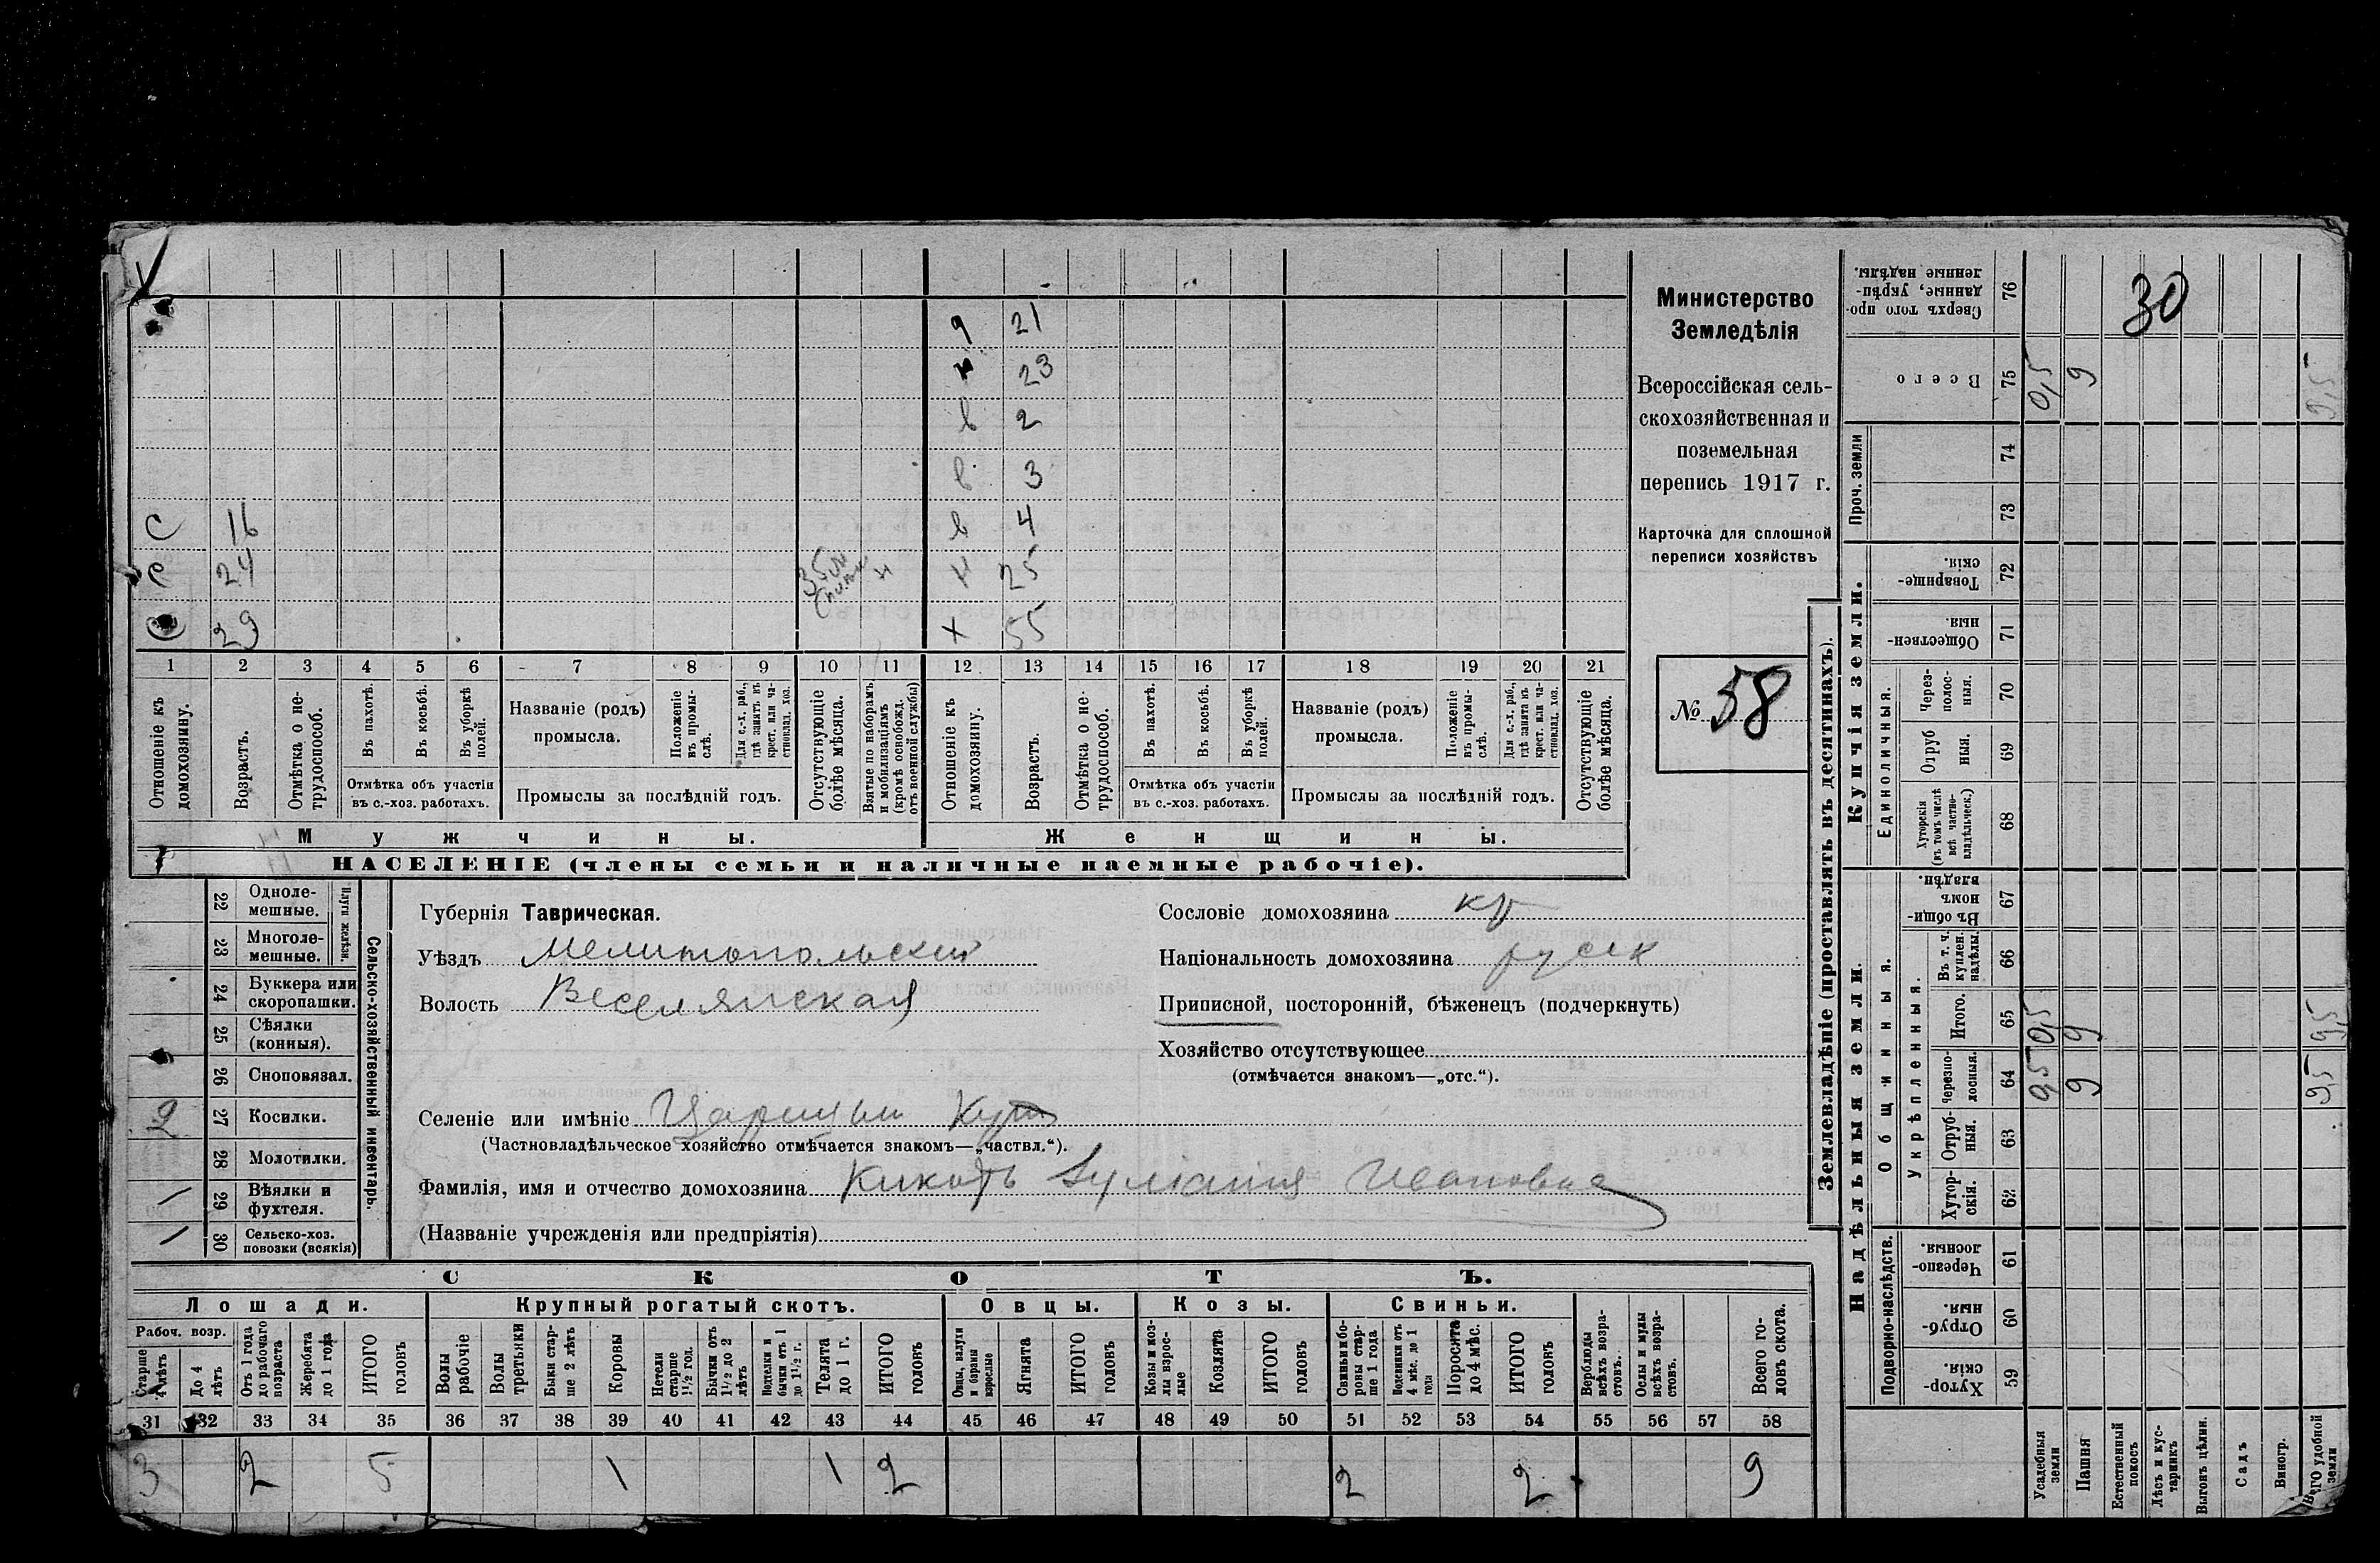 Министерство
Земледѣлія
Всероссійская сель-
скохозяйственная и
поземельная
перепись 1917 г.
Карточка для сплошной
переписи хозяйствъ
№ 58
30
21
23
в 2
в 3
С 16 в 4
С 24 25
29 55
1 2 3 4 5 6 7 8 9 10 11 12 13 14 15 16 17 18 19 20 21
Отношеніе къ домохозяину.
Возрастъ.
Отмѣтка о не-трудоспособ.
Въ пахотѣ.
Въ косьбѣ.
Въ уборкѣ полей.
Отмѣтка объ участіи
въ с.-хоз. работахъ.
Названіе (родъ)
промысла.
Положеніе въ промы-слѣ.
Для с.-х. раб., гдѣ занятъ въ крест. или ча-стновлад. хоз.
Промыслы за послѣдній годъ.
Отсутствующіе болѣе мѣсяца.
Взятые по наборамъ и мобилизаціямъ (кромѣ освобожд. отъ военной службы)
Отношеніе къ домохозяину.
Возрастъ.
Отмѣтка о не-трудоспособ.
Въ пахотѣ.
Въ косьбѣ.
Въ уборкѣ полей.
Отмѣтка объ участіи
въ с.-хоз. работахъ.
Названіе (родъ)
промысла.
Положеніе въ промы-слѣ.
Для с.-х. раб., гдѣ занята въ крест. или ча-стновлад. хоз.
Промыслы за послѣдній годъ.
Отсутствующіе болѣе мѣсяца.
Мужчины. Женщины.
НАСЕЛЕНІЕ (члены семьи и наличные наемные рабочіе).
Сельско-хозяйственный инвентарь.
Плуги желѣзн.
22 Одноле-мешные.
23 Многоле-мешные.
24 Буккера или скоропашки.
25 Сѣялки (конныя).
26 Сноповязал.
2 27 Косилки.
28 Молотилки.
1 29 Вѣялки и фухтеля.
1 30 Сельско-хоз. повозки (всякія)
Губернія Таврическая.
Уѣздъ Мелитопольский
Волость Веселянская
Сословіе домохозяина кр
Національность домохозяина русск
Приписной, посторонній, бѣженецъ (подчеркнуть)
Хозяйство отсутствующее
(отмѣчается знакомъ—„отс.“).
Селеніе или имѣніе Царицын Кут
(Частновладѣльческое хозяйство отмѣчается знакомъ—„частвл.“).
Фамилія, имя и отчество домохозяина Кикоть Ивановна
(Названіе учрежденія или предпріятія)
СКОТЪ.
Лошади. Крупный рогатый скотъ. Овцы. Козы. Свиньи.
Рабоч. возр.
Старше 4 лѣтъ
До 4 лѣтъ
Отъ 1 года до рабочаго возраста
Жеребята до 1 года
ИТОГО головъ
Волы рабочіе
Волы третьяки
Быки стар-ше 2 лѣтъ
Коровы
Нетели старше 1½ год.
Бычки отъ 1½ до 2 лѣтъ
Подтелки и бычки отъ 1 до 1½ г.
Телята до 1 г.
ИТОГО головъ
Овцы, валухи и бараны взрослые
Ягнята
ИТОГО головъ
Козы и коз-лы взрос-лые
Козлята
ИТОГО головъ
Свиньи и бо-ровы стар-ше 1 года
Подсвинки отъ 4 мѣс. до 1 года
Поросята до 4 мѣс.
ИТОГО головъ
Верблюды всѣхъ возра-стовъ.
Ослы и мулы всѣхъ возра-стовъ.
Всего го-ловъ скота.
31 32 33 34 35 36 37 38 39 40 41 42 43 44 45 46 47 48 49 50 51 52 53 54 55 56 57 58
3 2 5 1 1 2 2 2 9
Землевладѣніе (проставлять въ десятинахъ).
Купчія земли.
Надѣльныя земли.
Проч. земли
Единоличныя.
Общинныя.
Укрѣпленныя.
Подворно-наслѣдств.
Сверхъ того про-данные, укрѣп-ленные надѣлы. 76
Всего 75 0,5 9 9,5
74
73
Товарище-скія. 72
Обществен-ныя. 71
Через-полос-ныя. 70
Отруб ныя. 69
Хуторскія (въ томъ числѣ всѣ частно-владѣльческ.) 68
Въ общин-номъ владѣн. 67
Въ т. ч. куплен. надѣлы. 66
Итого. 65 0,5 9 9,5
Черезпо-лосныя. 64 0,5 9 9,5
Отруб-ныя. 63
Хутор-скія. 62
Черезпо-лосныя. 61
Отруб-ныя. 60
Хутор-скія. 59
Усадебныя земли
Пашня
Естественный покосъ
Лѣсъ и кус-тарникъ
Выгонъ цѣлин.
Садъ
Виногр.
Всего удобной земли